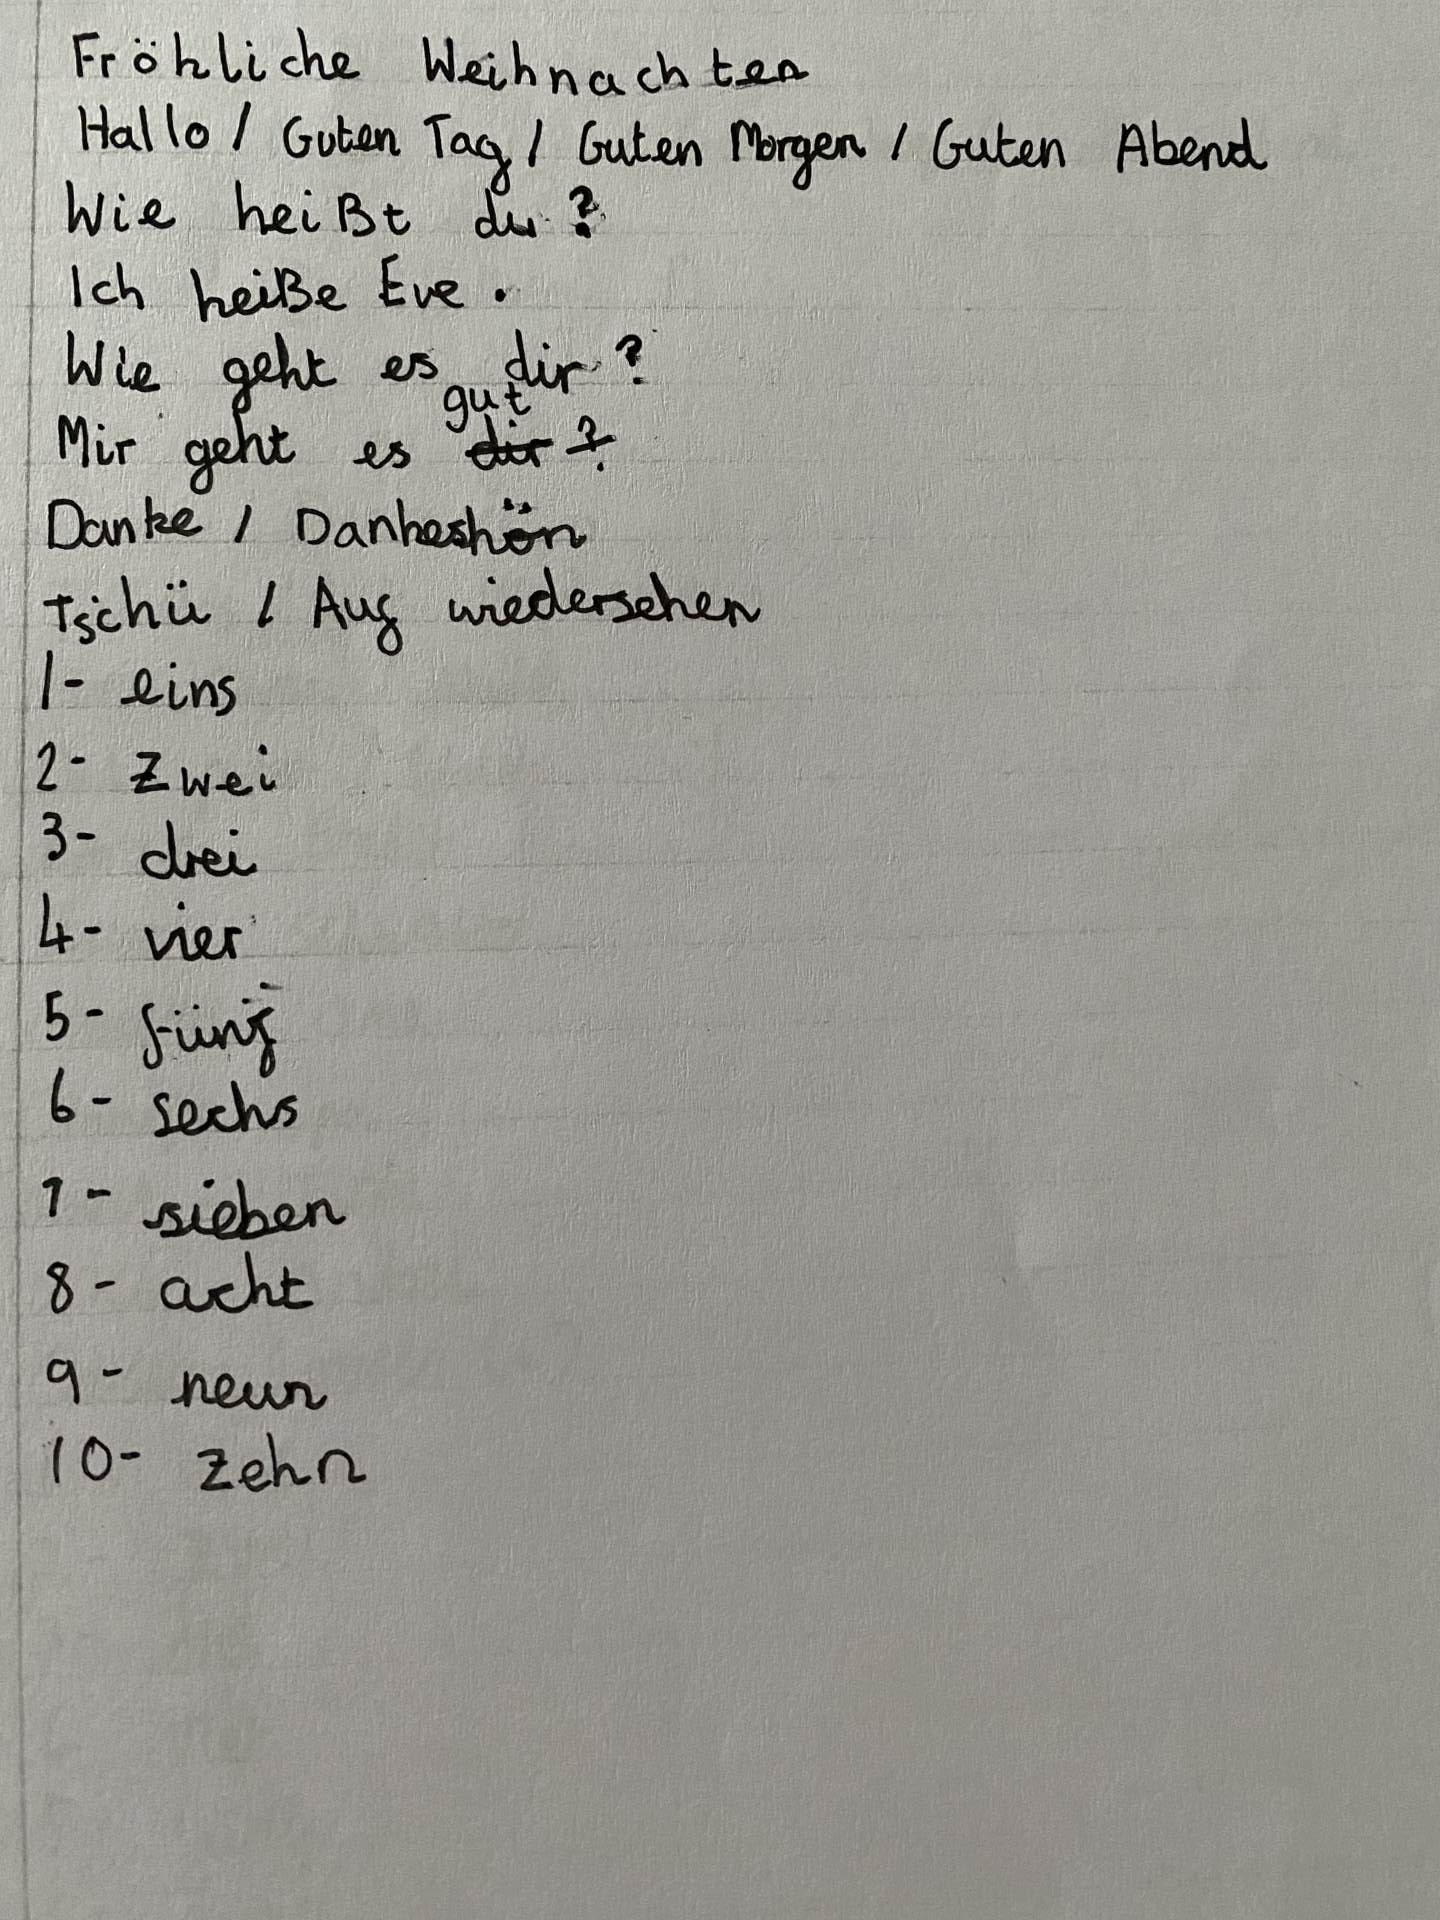 Fröhliche Weihnachten
Hallo / Guten Tag / Guten Morgen / Guten Abend
Wie heißt du?
Ich heiße Eve.
Wie geht es dir?
Mir geht es gut dir?
Danke / Dankeshön
Tschü / Auf wiedersehen
1- eins
2- zwei
3- drei
4- vier
5- fünf
6- sechs
7- sieben
8- acht
9- neun
10- zehn